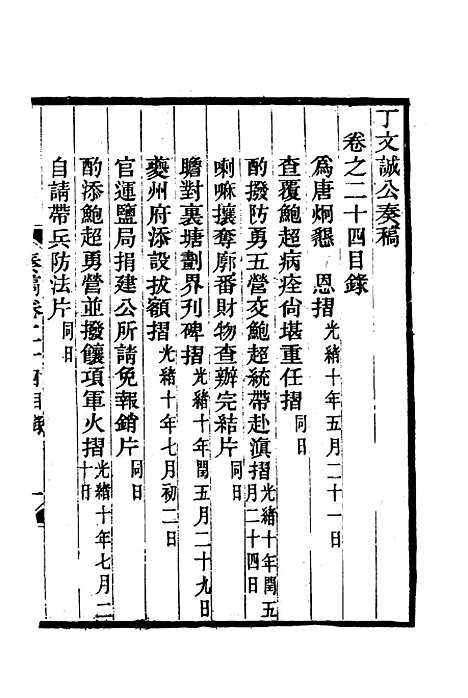 丁文誠公奏稿
卷之二十四目錄
為唐炯懇 恩摺光緒十年五月二十一日
查覆鮑超病痊尙堪重任摺同日
酌撥防勇五營交鮑超統帶赴滇摺光緒十年閏五月二十四日
喇嘛攘奪廓番財物查辦完結片同日
瞻對裏塘劃界刋碑摺光緒十年閏五月二十九日
夔州府添設拔額摺光緒十年七月初二日
官運鹽局捐建公所請免報銷片同日
酌添鮑超勇營並撥饟項軍火摺光緒十年七月二十日
自請帶兵防法片同日
奏稿卷二十四目錄 一